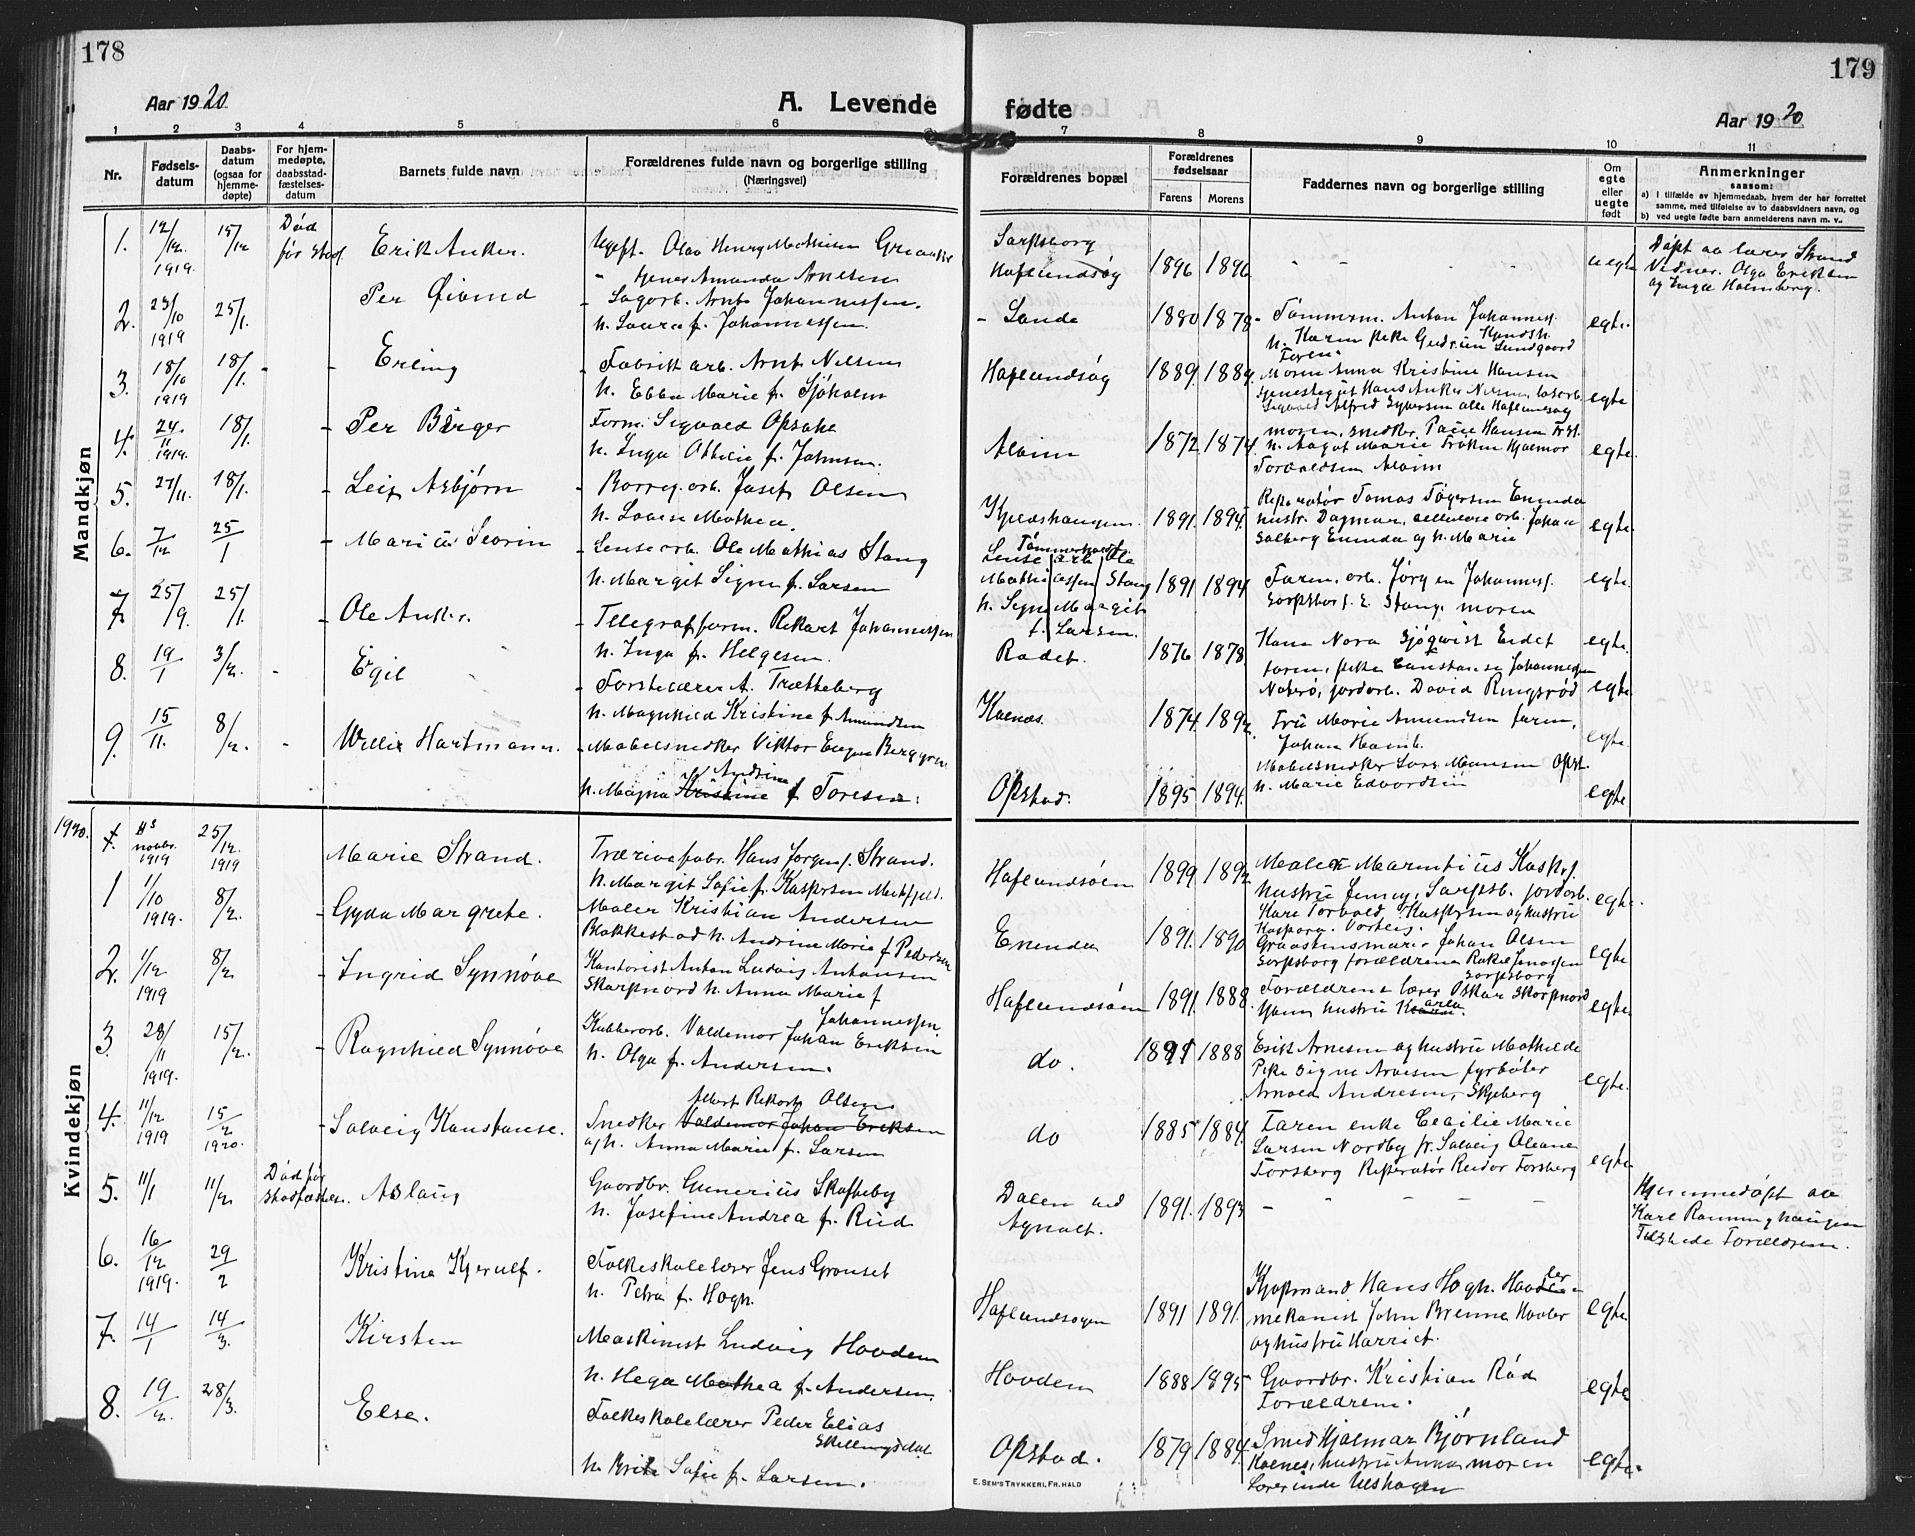 178
Aar 1920
A. Levende
1 2 3 4 5 6
Nr.
Fødsels-
datum
Daabs-
datum
(ogsaa for
hjemme-
døpte)
For hjem-
medøpte,
daabsstad-
fæstelses-
datum
Barnets fulde navn
Forældrenes fulde navn og borgerlige stilling
(Næringsvei)
Mandkjøn
1. 12/12 1919. 15/12 Død før Stadf Erik Anker.
Ugift. Olav Henry Mathisen
" Amanda Arnesen
2. 23/10 1919 25/1. Per Øivind
Sagarb. Arnt Johannessen.
h. Laura f. Johannessen.
3. 18/10 1919 18/1. - Erling
Fabrikarb. Arnt Nilsen
h. Ebba Marie f. Sjøholm
4. 24/11 1919. 18/1. Per Birger
Form. Sigvald Opsahl
h. Inga Ottilie f. Johnsen.
5. 27/11. 18/1. Leif Asbjørn
Borreg. arb. Josef Olsen
h. Lovise Mathea.
6. 7/12 25/1 Marius Severin
Lensearb. Ole Mathias Stang
h. Margit Signe f. Larsen
7. 25/9. 25/1. Ole Anker.
Telegrafform. Rikart Johannessen
h. Inga f. Helgesen.
8. 19/1 3/2. - Egil
Førstelærer A. Trætteberg
h. Magnhild Kristine f. Amundsen
9. 15/11. 8/2. - Willie Hartmann.
Møbelsnedker Viktor Eugen Berggren
Andrine
h. Magna Kristine f. Toresen.
Kvindekjøn
1920.
novbr. 1919 25/12. 1919 Marie Strand.
Hans Jørgen f. Strand.
h. Margit Sofie f. Kaspersen
1 1/10 1919. 8/2. Gyda Margrete.
Maler Kristian Andersen
Blakkestad h. Andrine Marie f. Pedersen
2. 1/12 1919 8/2. Ingrid Synnøve
Kontorist Anton Ludvig Antonsen
Skarpnord h. Anna Marie f
Johannessen.
3 28/11 1919. 15/2. Ragnhild Synnøve
Kubberarb. Valdemar Johan Eriksen
h. Olga f. Andersen.
Albert Rikart Olsen
4. 11/12 1919 15/2 1920. Solveig Konstanse.
Snedker Valdemar Johan Eriksen
og h. Anna Marie f. Larsen
5. 11/1 11/2 Død før Stadfæstelsen. Aslaug
Gaardbr. Gunerius Skofteby
h. Josefine Andrea f. Rud
6. 16/12 1919. 29/2 Kristine Kjerulf.
Folkeskolelærer Jens Grønset
h. Petra f. Hogh.
7. 14/1 14/3. Kirsten
Maskinist Ludvig Hovden
h. Helga Mathea f. Andersen.
8. 19/2. 28/3. Else.
Folkeskolelærer Peder Elias
Skillingsdal
h. Brita Sofie f. Larsen.
179
fødte
Aar 1920
7 8 9 10 11
Forældrenes bopæl
Forældrenes
fødselsaar
Farens Morens
Faddernes navn og borgerlige stilling
Om
egte
eller
uegte
født
Anmerkninger
saasom:
a) I tilfælde av hjemmedaab, hvem der har forrettet
samme, med tilføielse av to daabsvidners navn, og
b) ved uegte fødte barn anmelderens navn m. v..
Sarpsborg
Haflundsøy 1896 1896 - - - uegte
Døpt av lærer Strand
Vidner. Olga Eriksen
og Inga Holmberg.
Sande 1880 1878 Tømmerm. Anton Johannes f.
h. Karen Pike Gudrun Sundgaard
Faren. egte.
Haflundsøy 1889. 1884. Moren Anna Kristine Hansen
Tjenestegut Hans Anker Nilsen
Sigvald Alfred Syversen alle Haflundsøy egte
Alvim 1872 1874. moren, snedker Paul Hansen
h. Aagot Marie Frøken Hjalmar
Torvaldsen Alvim egte.
1891. 1894. Reparatør Tomas Tøgersen Enenda
hustr. Dagmar, cellulosearb. Johan
Solberg Enenda og h. Marie egte.
Tømmerhuset
Lensearb. Ole
Mathiassen Stang
h. Signe Margit
f. Larsen. 1891 1894 Faren, arb. Jørgen Johannes f.
Sarpsborg. E. Stang. moren egte.
Radet. 1876 1878 Kone Nora Sjøqvist Eidet
faren, pike Constanse Johannessen
jordarb. David Ringsrød egte.
egte.
Kalnæs. 1874. 1892. Fru Marie Amundsen faren,
Johan egte.
Opstad. 1895 1894. Møbelsnedker Lars Monsen Opst.
h. Marie Edvardsen egte
Haflundsøen 1899 1892 Maler Marentius Kasper f.
hustru Jenny, Sarpsb. jordarb.
Kare Torvald, Kaspersen og hustru
egte.
Enenda 1891. 1890 Johan Olsen
Sarpsborg forældrene Rakel Jensen
Sarpsborg egte
Haflundsøen 1891. 1888. Forældrene lærer Oskar Skorpnord
hustru Karla egte
do. 1891 1888 Erik Arnesen og hustru Mathilde
Pike Signe Arnesen fyrbøter
Arnold Andresen, Skjeberg egte.
do 1885 1884. Faren enke Cecilie Marie
Larsen Nordby fr. Solveig Oleane
Forsberg Reparatør Reidar Forsberg egte
Dalen ved
Agnalt. 1891. 1893 - - - - -
Hjemmedøpt av
Karl Ramminghaugen
Tilstede Forældrene.
Haflundsøyen 1891 1891. Kjøpmand Hans Hogh. Hovde
mekanist John Brenne Hovler
og hustru Harriet. egte
Hovden 1888 1895 Gaardbr. Kristian Rød
Forældrene. egte
Opstad. 1879 1884. Smed Hjalmar Bjørnland
Kalnes, hustru Anna, moren
Lærerinde Ulshagen egte.
E. SEM'S TRYKKERI, FR. HALD